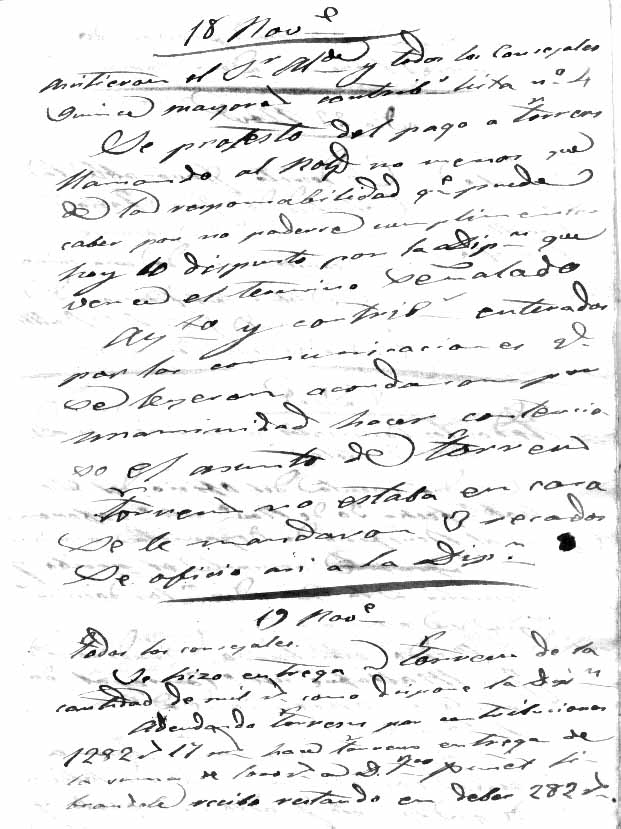 18 Nov.e
asistieron el Sr. Alde. y todos los Concejales
quince mayores contrib.s lista n.º 4
Se protesto del pago a Torrens
llamando al no menos que
de la responsabilidad q.e puede
caber por no poderse cumplimentar
hoy lo dispuesto por la Dip.n que
vence el termino señalado
Ay.to y contrib.s enterados
por las comunicaciones q.e
se leyeron acordaron por
unanimidad hacer contencio
so el asunto de Torrens
Torrens no estaba en casa
Se le mandaron 3 recados
Se oficio asi a la Dip.n
19 Nov.e
Todos los concejales.
Se hizo entrega a Torrens de la
cantidad de mil como dispone la Dip.n
Adeudando Torrens por contribuciones
1282 r.s 17 m.s hace Torrens entrega de
la suma de 1000 r.s a D. Pinet li
brandole recibo restando en deber 282 r.s